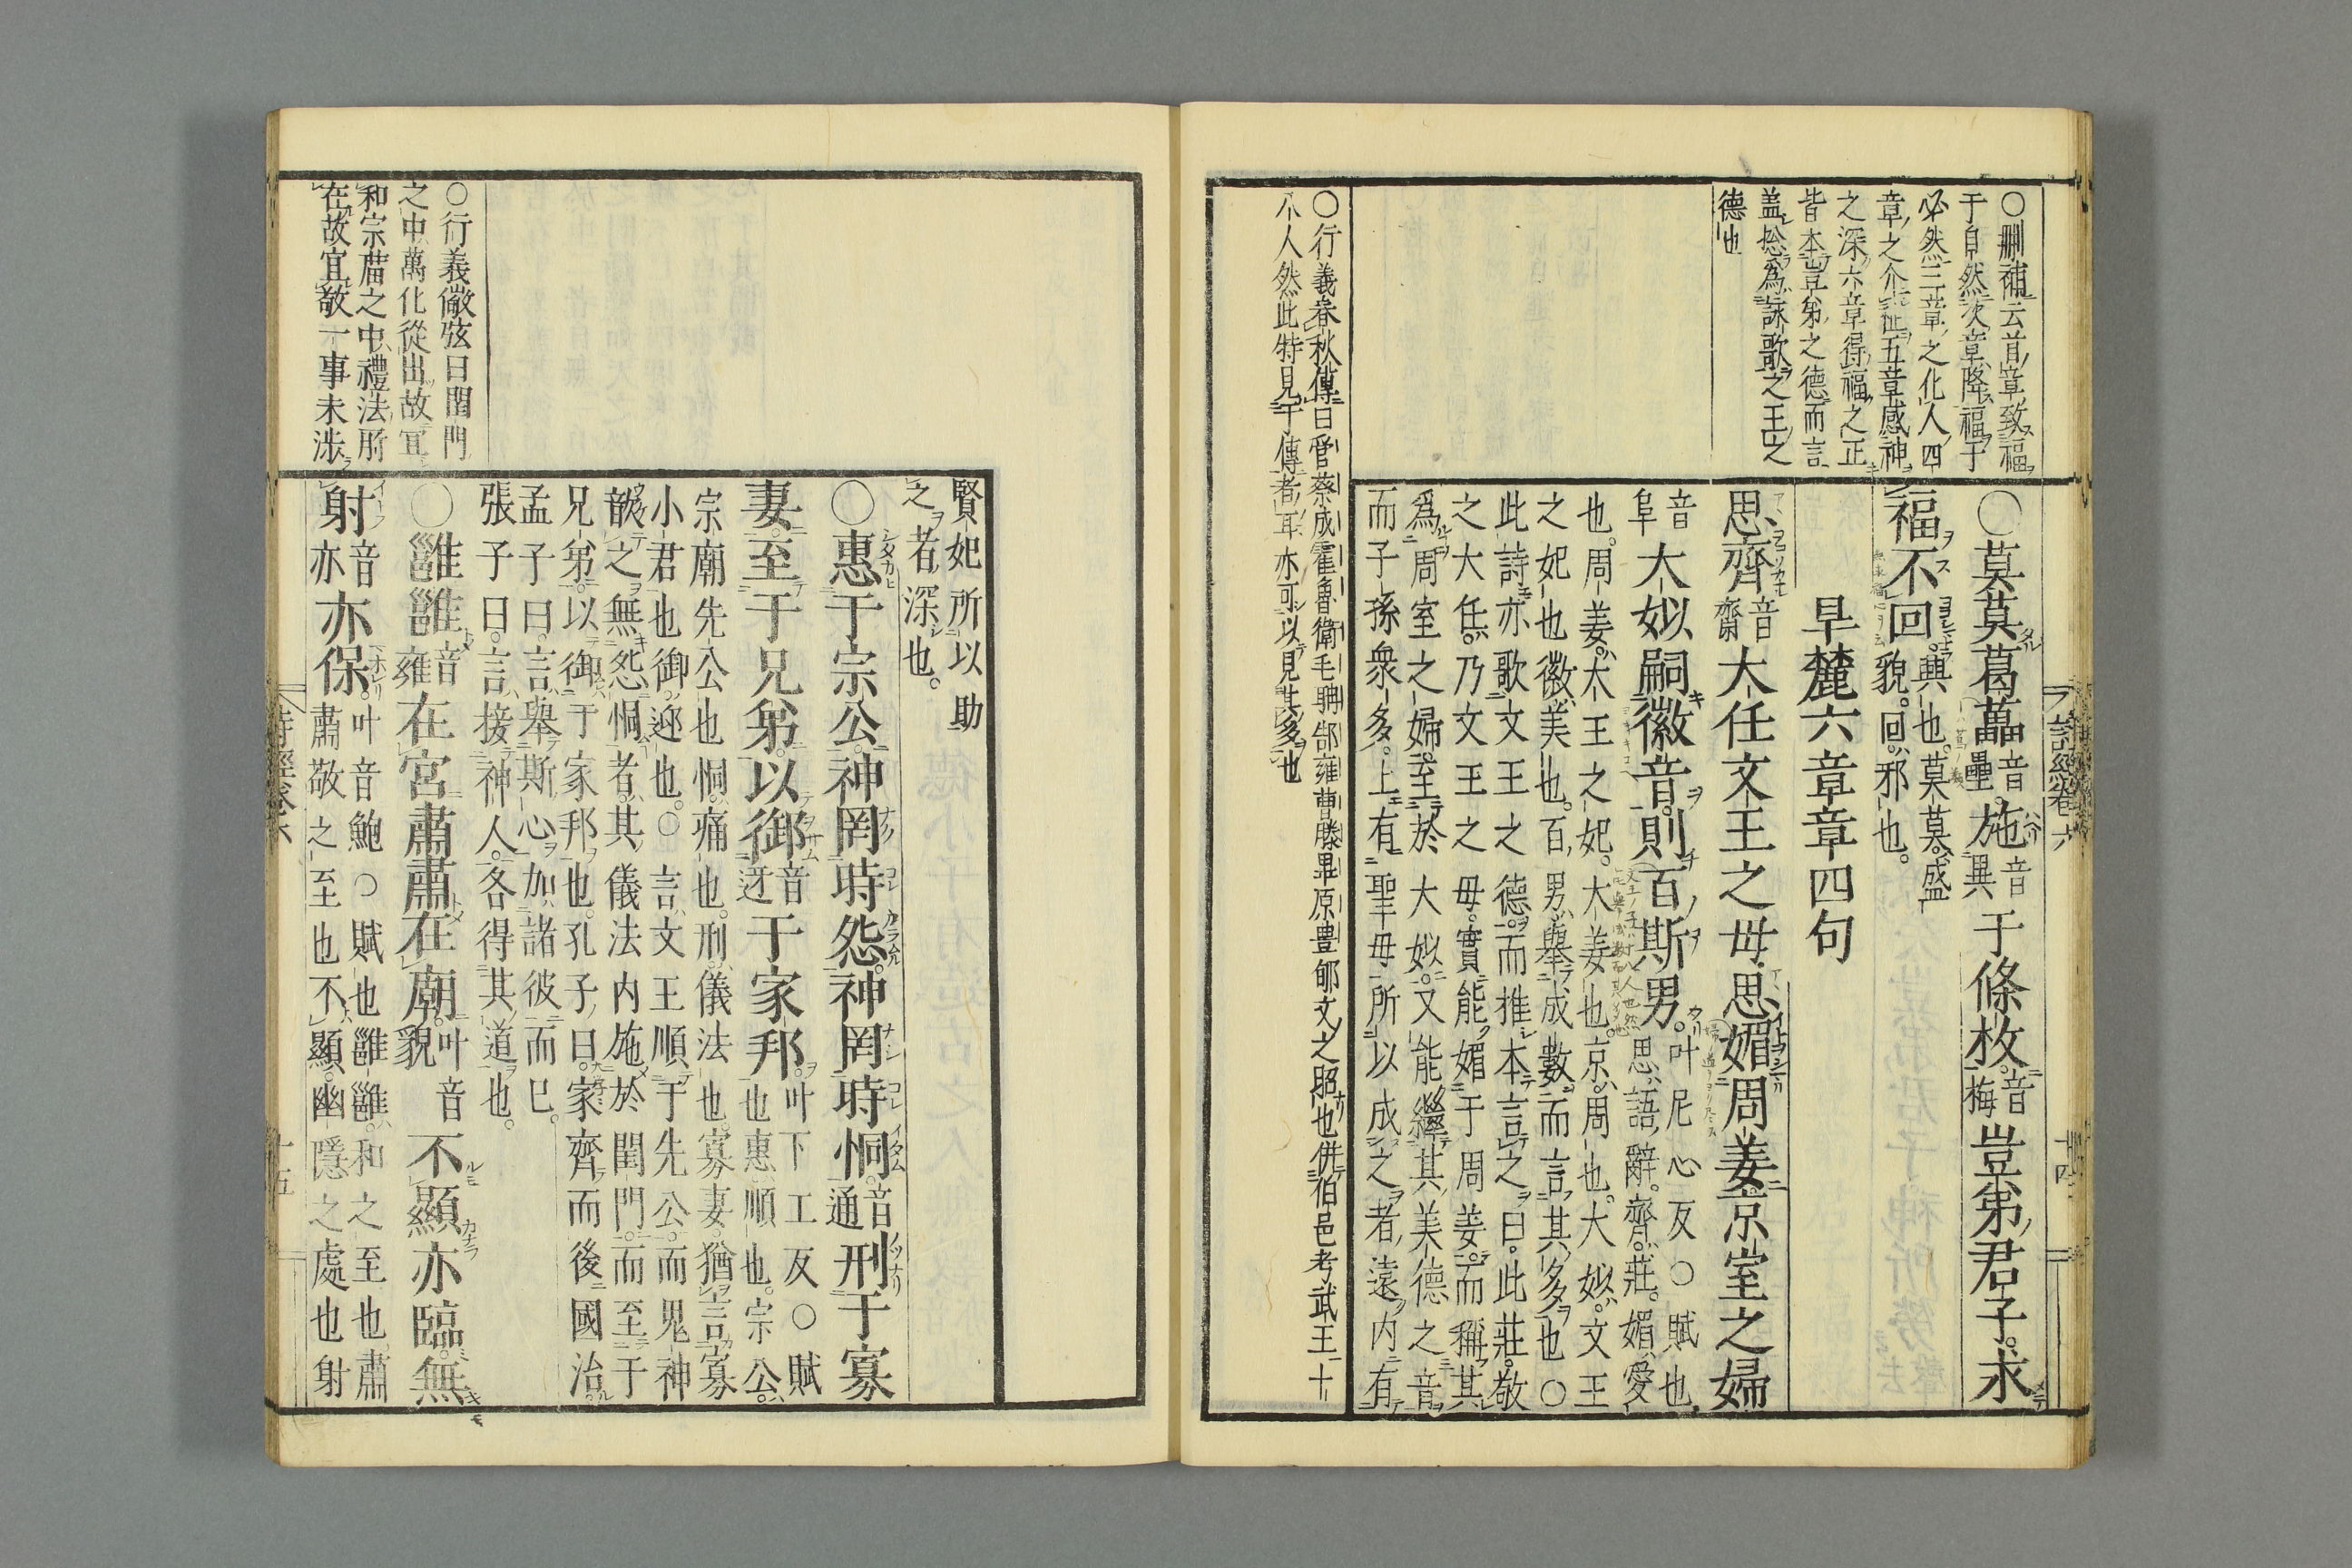 ○刪補云首章致福
于自然次章降福于
必然三章之化人四
章之介祉五章感神
之深六章得福之正
皆本豈弟之德而言
蓋捴爲詠歌之王之
德也
○莫莫葛藟音壘施音異于條枚音梅豈弟君子求
福不回興也莫莫盛貌回邪也
旱麓六章章四句
思齊音齋大任文王之母思媚周姜京室之婦
大姒嗣徽音則百斯男叶尼心反○賦也
音阜思語辭齊莊媚愛
也周姜大王之妃大姜也京周也大姒文王
之妃也徽美也百男舉成數而言其多也○
此詩亦歌文王之德而推本言之曰此莊敬
之大任乃文王之母實能媚于周姜而稱其
爲周室之婦至於大姒又能繼其美德之音
而子孫衆多上有聖母所以成之者遠內有
○行義春秋傳曰管蔡成霍魯衛毛聃郜雍曹滕畢原豊郇文之昭也併伯邑考武王十
八人然此特見于傳者耳亦可以見其多也
詩經卷六
十四
賢妃所以助
之者深也
○惠于宗公神罔時怨神罔時恫音通刑于寡
妻至于兄弟以御音迓于家邦叶卜工反○賦
也惠順也宗公
宗廟先公也恫痛也刑儀法也寡妻猶言寡
小君也御迎也○言文王順于先公而鬼神
歆之無怨恫者其儀法內施於閨門而至于
兄弟以御于家邦也孔子曰家齊而後國治
孟子曰言舉斯心加諸彼而已
張子曰言接神人各得其道也
○雝雝音雍在宮肅肅在廟叶音貌不顯亦臨無
射音亦亦保叶音鮑○賦也雝雝和之至也肅
肅敬之至也不顯幽隱之處也射
○行義儆弦曰閨門
之中萬化從出故宜
和宗庿之中禮法所
在故宜敬一事未渉
詩經卷六
十五